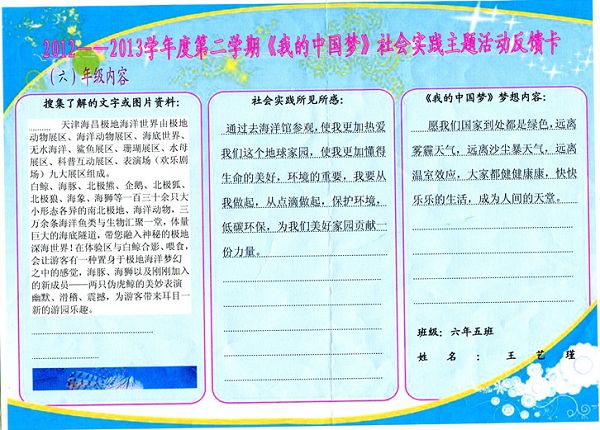 2012——2013学年度第二学期《我的中国梦》社会实践主题活动反馈卡
（六）年级内容
搜集了解的文字或图片资料：
天津海昌极地海洋世界由极地
动物展区、海洋动物展区、海底世界、
无水海洋、鲨鱼展区、珊瑚展区、水母
展区、科普互动展区、表演场（欢乐剧
场）九大展区组成。
白鲸、海豚、北极熊、企鹅、北极狐、
北极狼、海象、海狮等一百三十余只大
小形态各异的南北极地、海洋动物，三
万余条海洋鱼类与生物汇聚一堂，体量
巨大的海底隧道，带您融入神秘的极地
深海世界！在体验区与白鲸合影、喂食，
会让游客有一种置身于极地海洋梦幻
之中的感觉，海豚、海狮以及刚刚加入
的新成员——两只伪虎鲸的美妙表演
幽默、滑稽、震撼，为游客带来耳目一
新的游园乐趣。
社会实践所见所感：
通过去海洋馆参观，使我更加热爱
我们这个地球家园，使我更加懂得
生命的美好，环境的重要，我要从
我做起，从点滴做起，保护环境，
低碳环保，为我们美好家园贡献一
份力量。
《我的中国梦》梦想内容：
愿我们国家到处都是绿色，远离
雾霾天气，远离沙尘暴天气，远离
温室效应，大家都健健康康，快快
乐乐的生活，成为人间的天堂。
班级：六年五班
姓名：王艺瑾